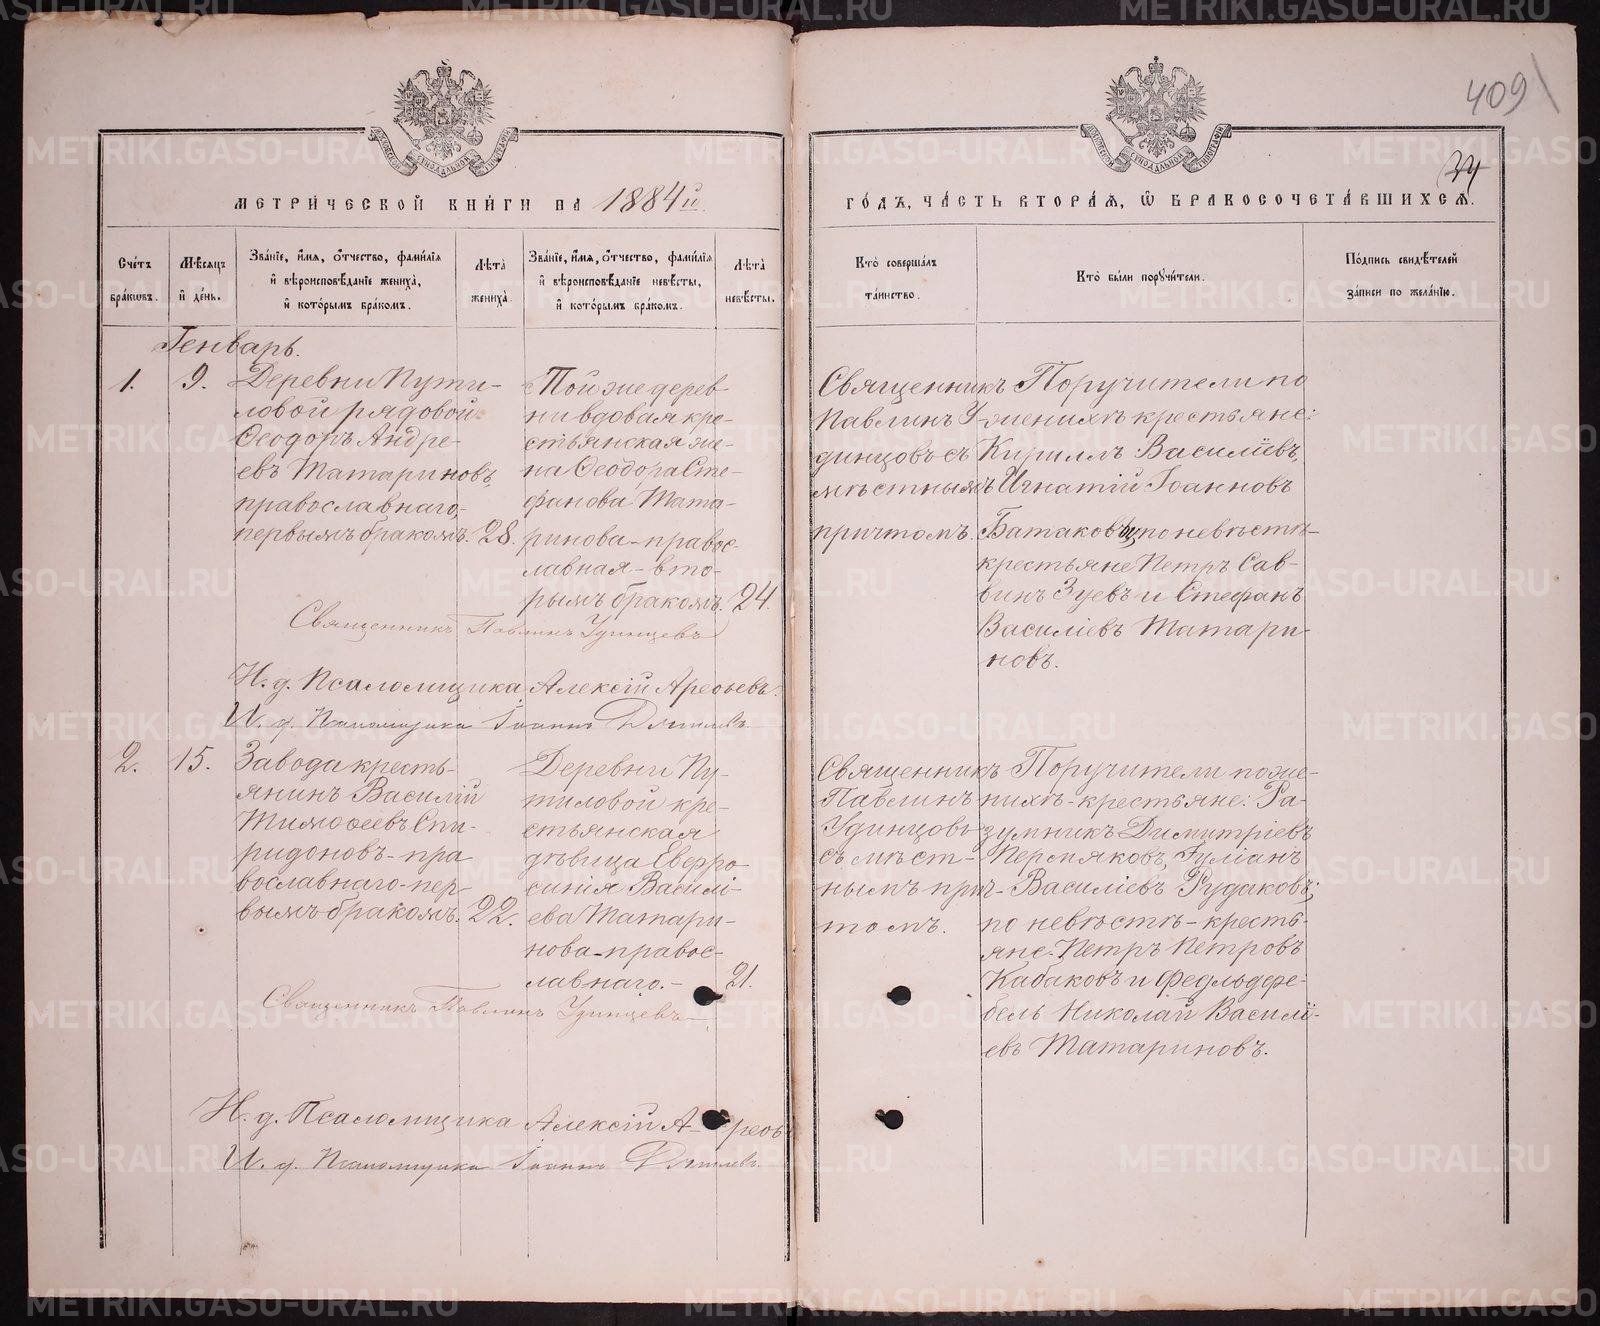 409
34
МЕТРИ́ЧЕСКОЙ КНИ́ГИ НА 1884й
ГО́ДЪ, ЧА́СТЬ ВТОРА́Ѧ, Ѽ БРАКОСОЧЕТА́ВШИХСѦ.
Сче́тъ бра́кѡвъ.
Мѣ́сяцъ й де́нь.
Зва́нїе, и́мя, о́тчество, фами́лїя й вѣроисповѣ́данїе жениха̀, й кото́рымъ бра́комъ.
Лѣта̀ жениха̀.
Зва́нїе, и́мя, о́тчество, фами́лїя й вѣроисповѣ́данїе невѣ́сты, й кото́рымъ бра́комъ.
Лѣта̀ невѣ́сты.
Кто̀ соверша́лъ та́инство.
Кто̀ бы́ли порꙋчи́тели.
По́дпись свидѣ́телей за́писи по жела́нїю.
Генварь.
1.
9.
Деревни Пути-
ловой рядовой
Ѳеодоръ Андре-
евъ Татариновъ,
православнаго,
первымъ бракомъ.
28.
Той же дерев-
ни вдовая кре-
стьянская же-
на Ѳеодора Сте-
фанова Тата-
ринова - правос-
лавная - вто-
рымъ бракомъ.
24.
Священникъ
Павлинъ У-
динцовъ съ
мѣстнымъ
причтомъ.
Поручители по
женихѣ крестьяне:
Кириллъ Василіевъ,
Игнатій Іоанновъ
Батаковы, по невѣстѣ-
крестьяне Петръ Сав-
винъ Зуевъ и Стефанъ
Василіевъ Татари-
новъ.
Священникъ Павлинъ Удинцевъ
И. д. Псаломщика Алексій Арефьевъ.
И. д. Псаломщика Іоаннъ
2.
15.
Завода кресть-
янинъ Василій
Тимоѳеевъ Спи-
ридоновъ - пра
вославнаго - пер-
вымъ бракомъ.
22.
Деревни Пу-
тиловой кре-
стьянская
дѣвица Евфро-
синія Василі-
ева Татари-
нова - правос-
лавнаго. -
21.
Священникъ
Павлинъ
Удинцовъ
съ мѣст-
нымъ прич-
томъ.
Поручители по же-
нихѣ - крестьяне: Ра-
зумникъ Димитріевъ
Пермяковъ, Іуліанъ
Василіевъ Рудаковъ;
по невѣстѣ - кресть-
яне: Петръ Петровъ
Кабаковъ и Фельдфе-
бель Николай Василі-
евъ Татариновъ.
Священникъ Павлинъ Удинцевъ
И. д. Псаломщика Алексій Арефь
И. д. Псаломщика Іоаннъ
METRIKI.GASO-URAL.RU